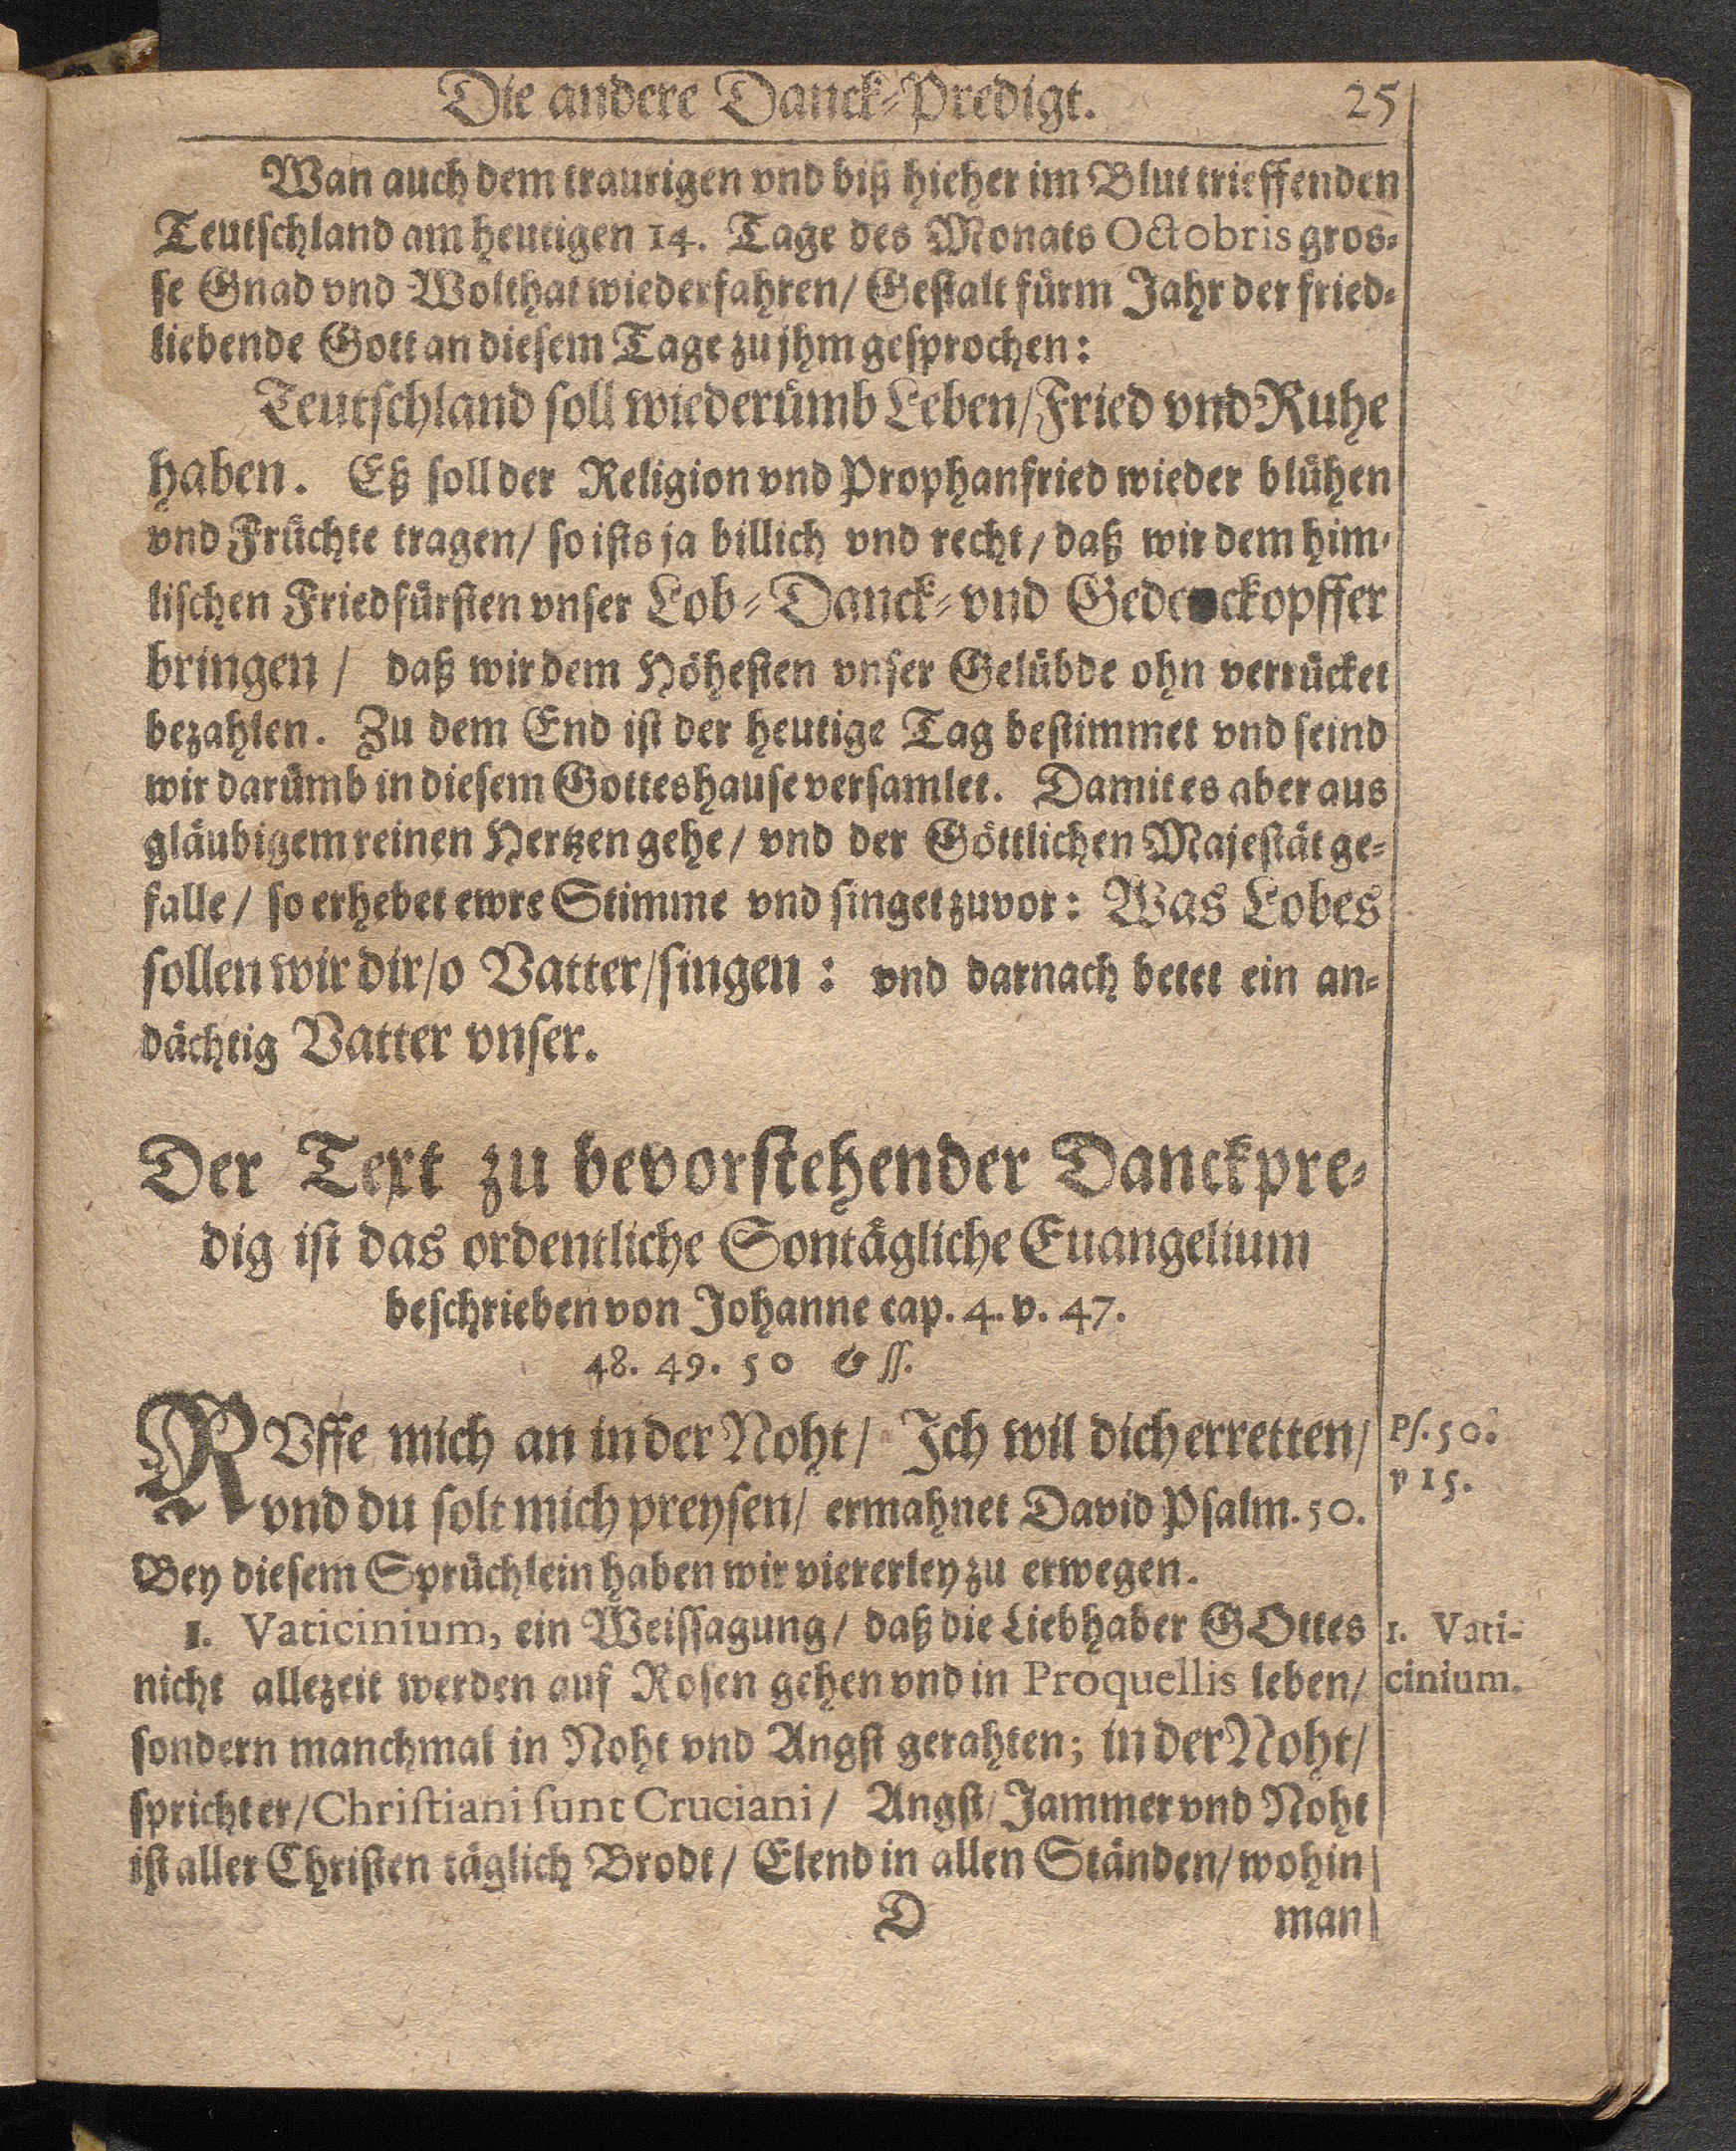 Die andere Danck-Predigt. 25
Wan auch dem traurigen vnd biß hieher im Blut trieffenden
Teutschland am heutigen 14. Tage des Monats Octobris gros-
se Gnad vnd Wolthat wiederfahren/ Gestalt fürm Jahr der fried-
liebende Gott an diesem Tage zu jhm gesprochen:
Teutschland soll wiederümb Leben/ Fried vnd Ruhe
haben. Eß soll der Religion vnd Prophanfried wieder blühen
vnd Früchte tragen/ so ists ja billich vnd recht/ daß wir dem him-
lischen Friedfürsten vnser Lob- Danck- vnd Gedenckopffer
bringen/ daß wir dem Höhesten vnser Gelübde ohn verrücket
bezahlen. Zu dem End ist der heutige Tag bestimmet vnd seind
wir darümb in diesem Gotteshause versamlet. Damit es aber aus
gläubigem reinen Hertzen gehe/ vnd der Göttlichen Majestät ge-
falle/ so erhebet ewre Stimme vnd singet zuvor: Was Lobes
sollen wir dir/ o Vatter/ singen: vnd darnach betet ein an-
dächtig Vatter vnser.
Der Text zu bevorstehender Danckpre-
dig ist das ordentliche Sontägliche Euangelium
beschrieben von Johanne cap. 4. v. 47.
48. 49. 50 & ss.
RVffe mich an in der Noht/ Ich wil dich erretten/
vnd du solt mich preysen/ ermahnet David Psalm. 50.
Ps. 50.
v 15.
Bey diesem Sprüchlein haben wir viererley zu erwegen.
1. Vaticinium, ein Weissagung/ daß die Liebhaber GOttes
nicht allezeit werden auf Rosen gehen vnd in Proquellis leben/
1. Vati-
cinium.
sondern manchmal in Noht vnd Angst gerahten; in der Noht/
spricht er/ Christiani sunt Cruciani/ Angst/ Jammer vnd Noht
ist aller Christen täglich Brodt/ Elend in allen Ständen/ wohin
D man